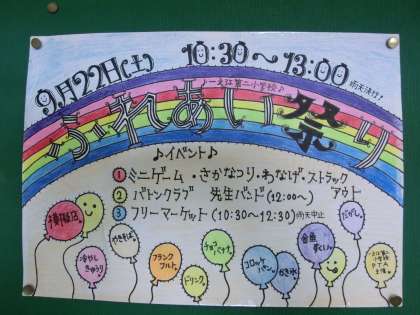 9月22日(土) 10:30〜13:00
雨天決行!
ふれあい祭り
♪イベント♪
① ミニゲーム・さかなつり・わなげ・ストラックアウト
② バトンクラブ 先生バンド(12:00〜)
③ フリーマーケット(10:30〜12:30)雨天中止
模擬店
冷やしきゅうり
やきそば
フランクフルト
ドリンク
チョコバナナ
コロッケパン
かき氷
金魚すくい
だがし